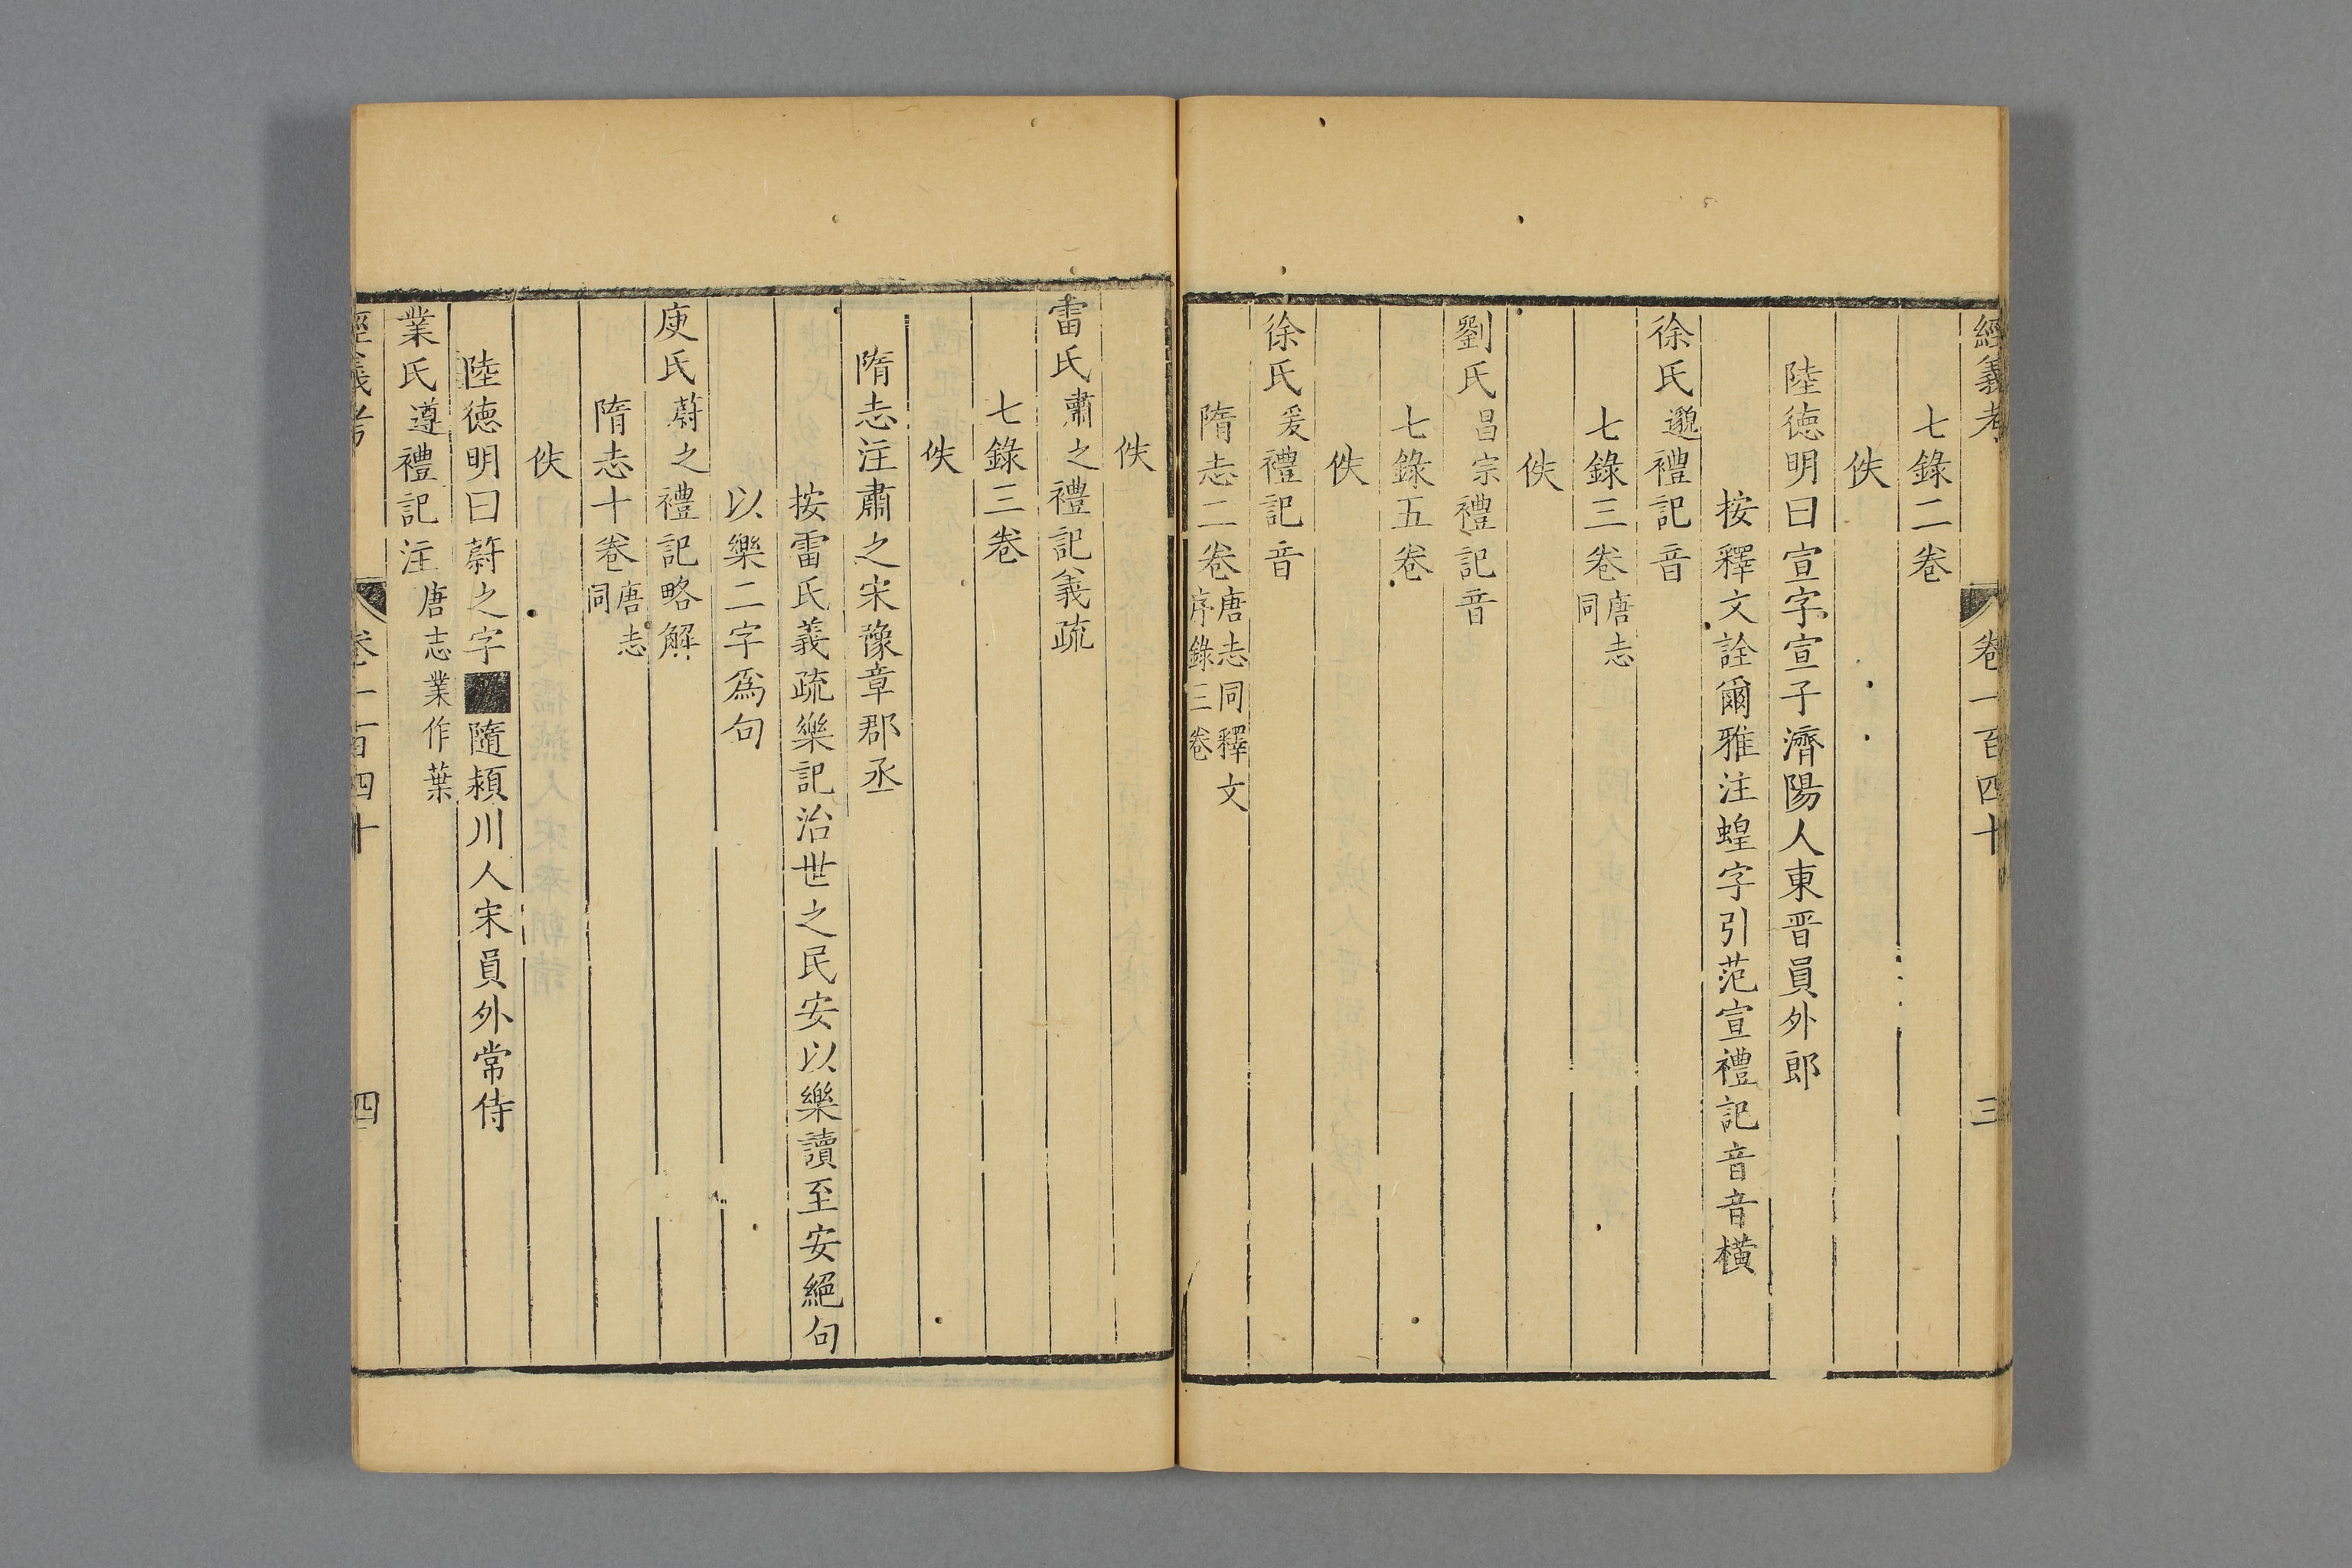 經義考 卷一百四十 三
七錄二卷
佚
陸德明曰宣字宣子濟陽人東晋員外郎
按釋文詮爾雅注蝗字引范宣禮記音音橫
徐氏邈禮記音
七錄三卷唐志同
佚
劉氏昌宗禮記音
七錄五卷
佚
徐氏爰禮記音
隋志二卷唐志同釋文序錄三卷
佚
雷氏肅之禮記義疏
七錄三卷
佚
隋志注肅之宋豫章郡丞
按雷氏義疏樂記治世之民安以樂讀至安絕句
以樂二字爲句
庾氏蔚之禮記略解
隋志十卷唐志同
佚
陸德明曰蔚之字隨頴川人宋員外常侍
業氏遵禮記注唐志業作葉
經義考 卷一百四十 四